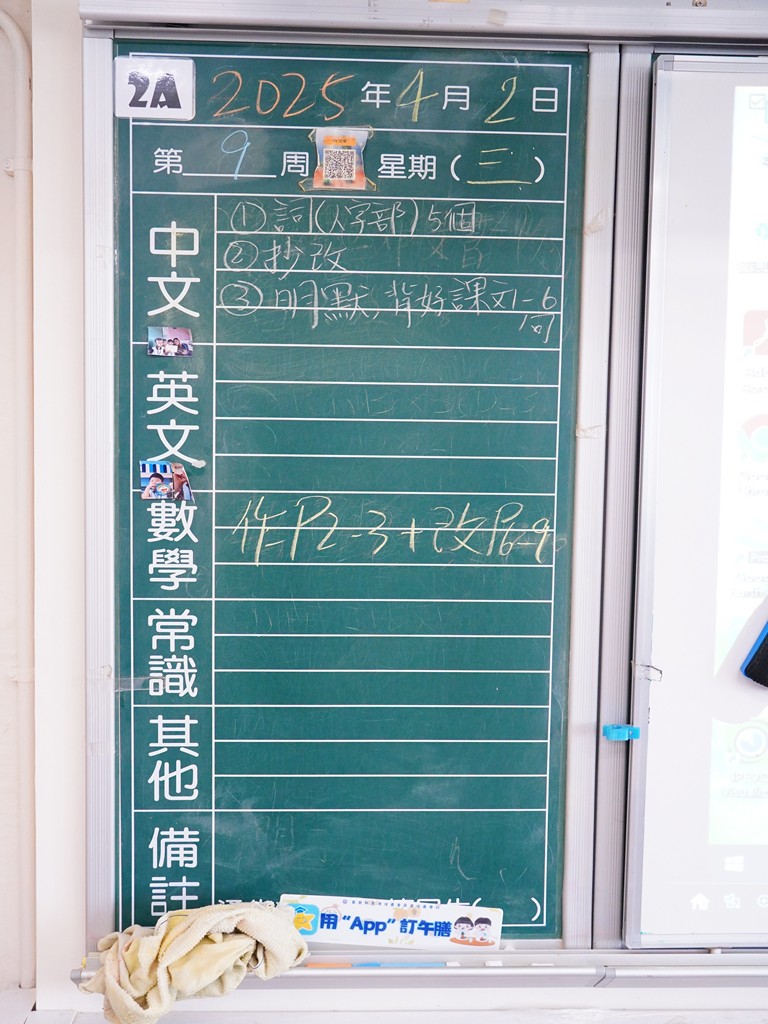 2A
2025年4月2日
第9周 星期(三)
中文
①詞(人字部)5個
②抄改
③明默,背好課文1-6
句
英文
數學
作P2-3+改P6-9
常識
其他
備註
用“App”訂午膳